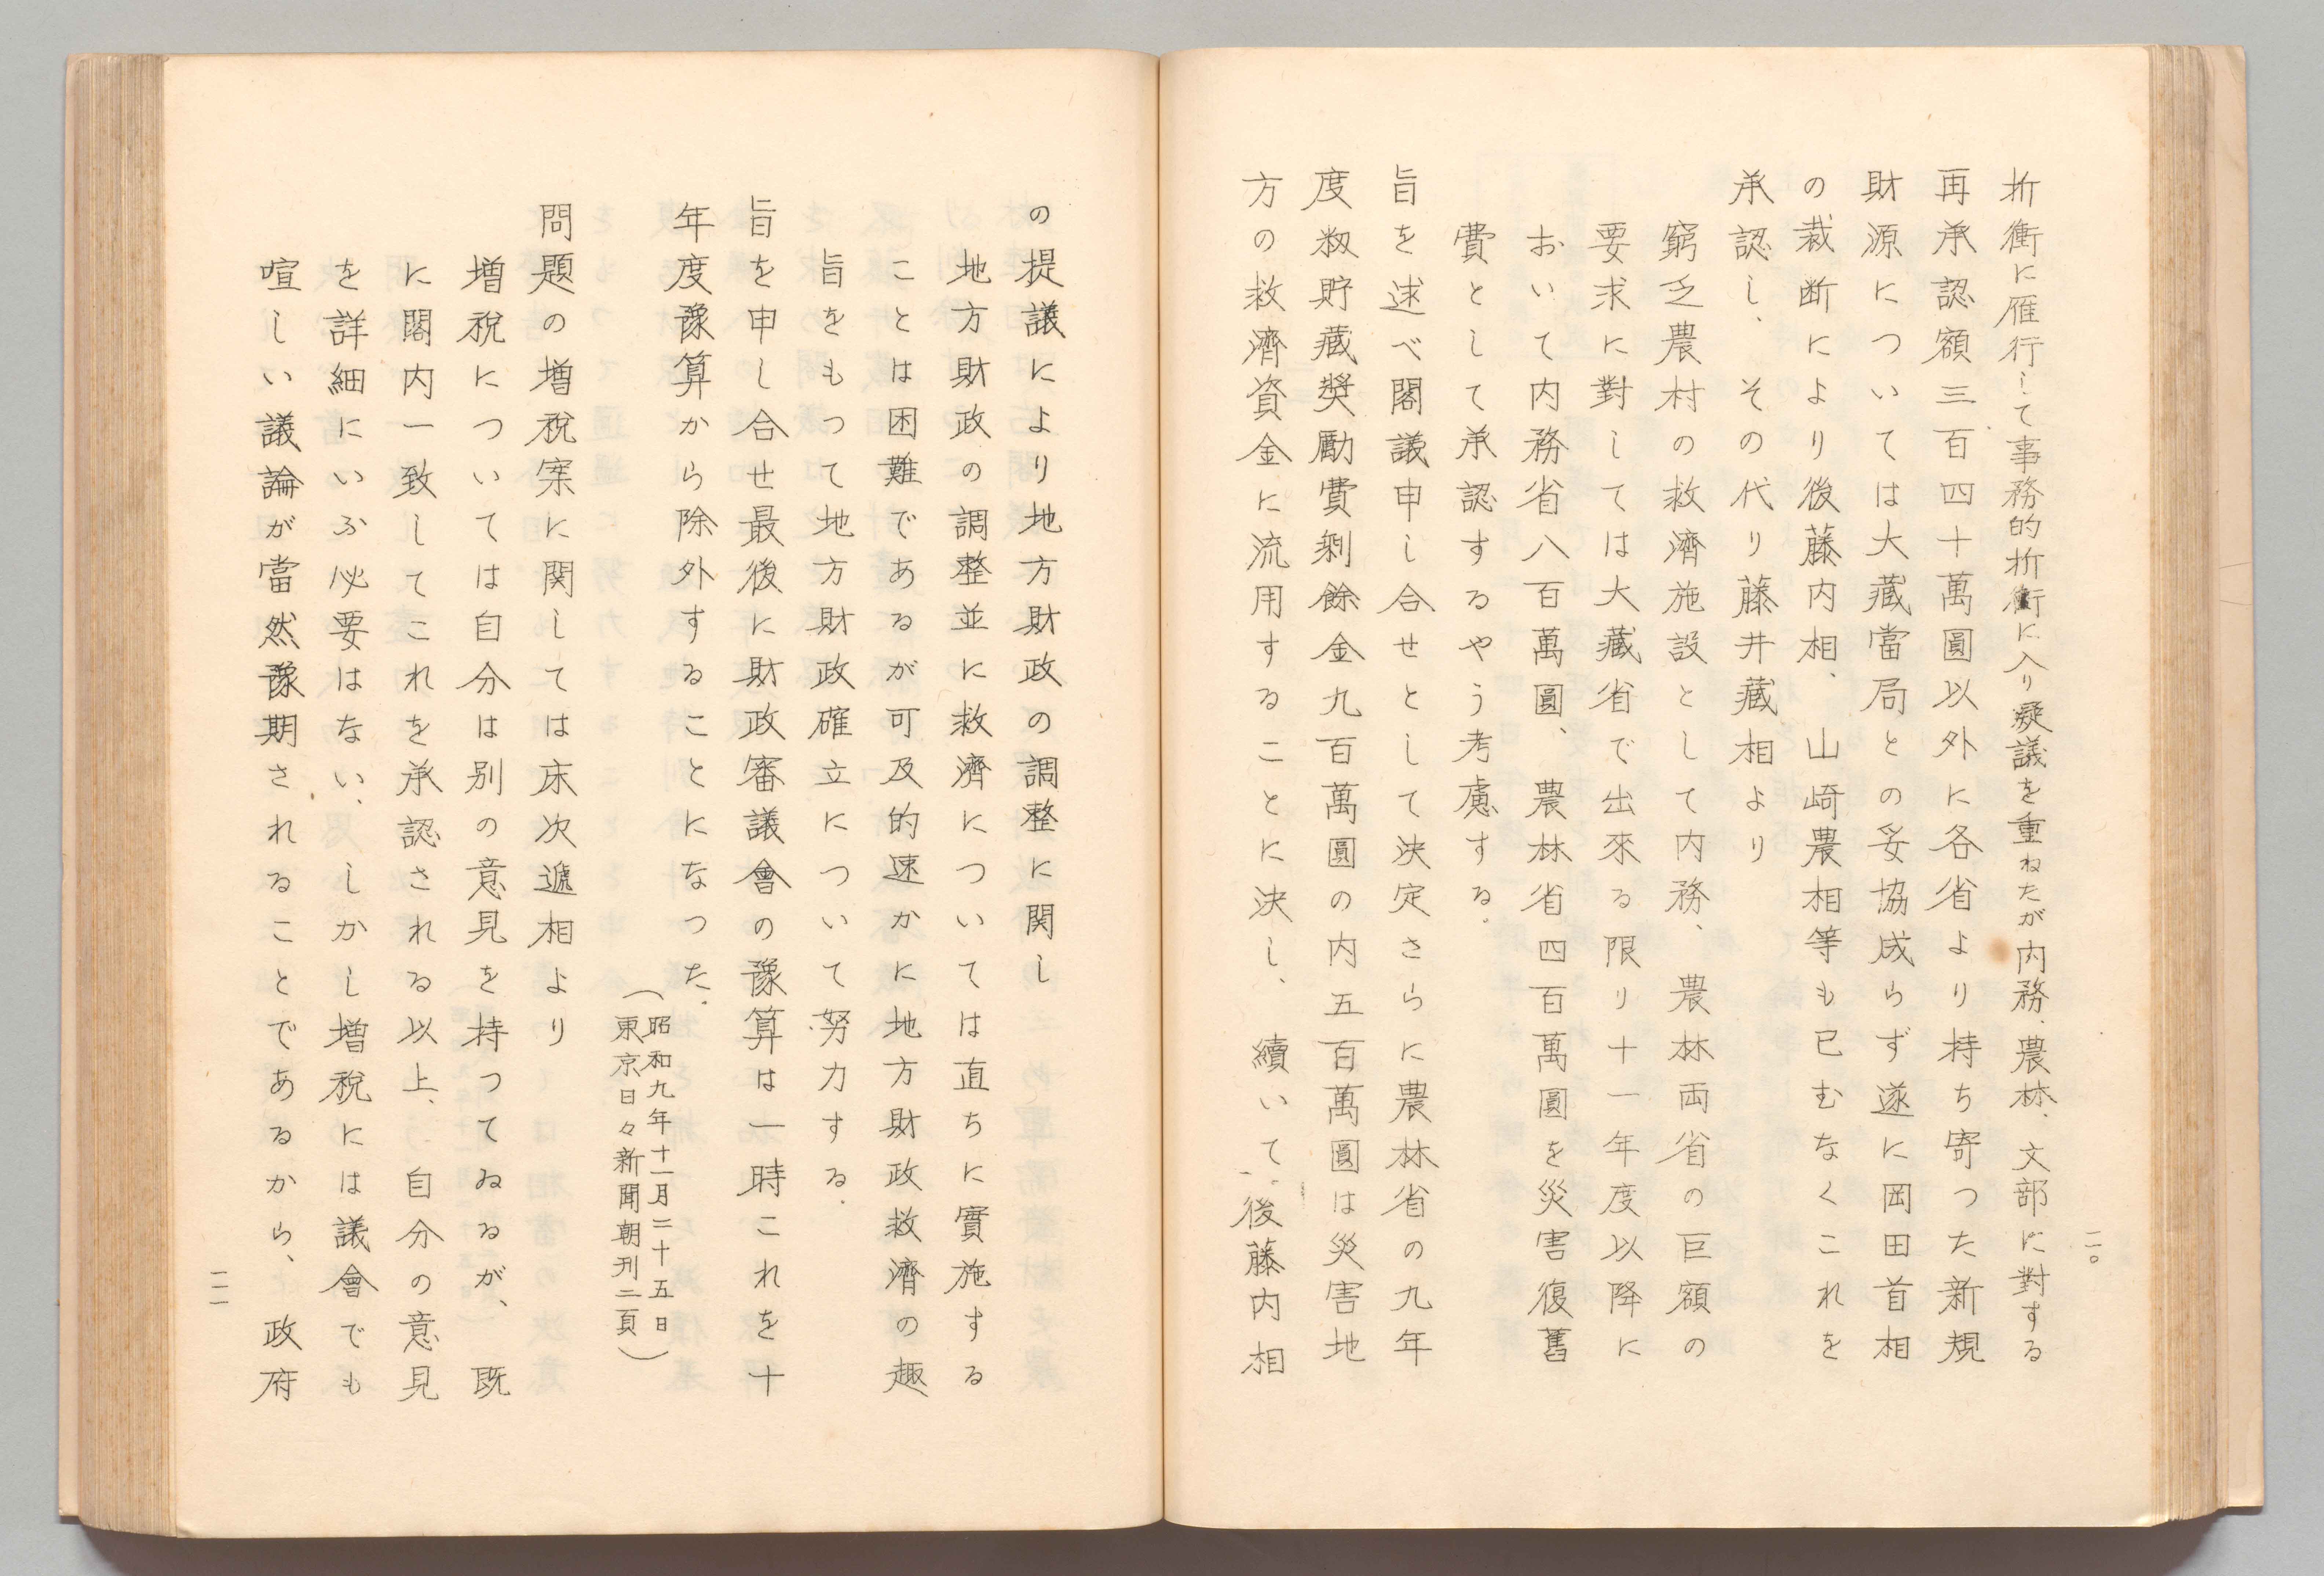 折衝に雁行して事務的折衝に入り凝議を重ねたが内務、農林、文部に對する
再承認額三百四十萬圓以外に各省より持ち寄つた新規
財源については大藏當局との妥協成らず遂に岡田首相
の裁断により後藤内相、山崎農相等も已むなくこれを
承認し、その代り藤井藏相より
窮乏農村の救濟施設として内務、農林両省の巨額の
要求に對しては大藏省で出來る限り十一年度以降に
おいて内務省八百萬圓、農林省四百萬圓を災害復舊
費として承認するやう考慮する.
旨を述べ閣議申し合せとして決定さらに農林省の九年
度籾貯藏奬勵費剰餘金九百萬圓の内五百萬圓は災害地
方の救濟資金に流用することに決し、續いて、後藤内相
二〇
の提議により地方財政の調整に関し
地方財政の調整並に救濟については直ちに實施する
ことは困難であるが可及的速かに地方財政救濟の趣
旨をもつて地方財政確立について努力する.
旨を申し合せ最後に財政審議會の豫算は一時これを十
年度豫算から除外することになつた.
(昭和九年十一月二十五日
東京日々新聞朝刊二頁)
問題の増税案に関しては床次遞相より
増税については自分は別の意見を持つてゐるが、既
に閣内一致してこれを承認される以上、自分の意見
を詳細にいふ必要はない、しかし増税には議會でも
喧しい議論が當然豫期されることであるから、政府
二一